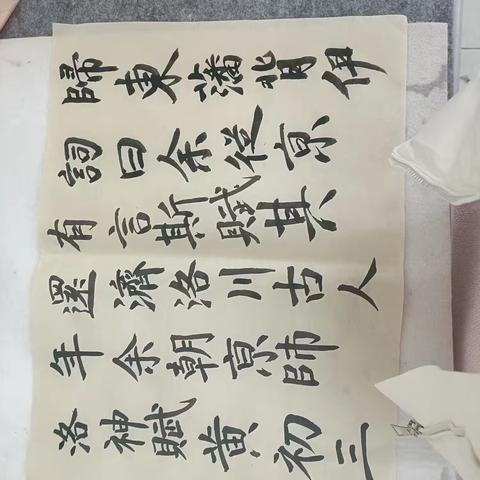 洛神賦黄初三
年余朝京師
還濟洛川古人
有言斯賦其
詞曰余從京
歸東藩背伊